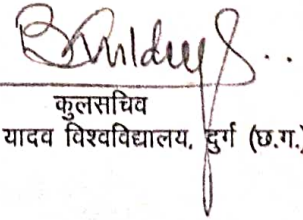 कुलसचिव
यादव विश्वविद्यालय, दुर्ग (छ.ग.)